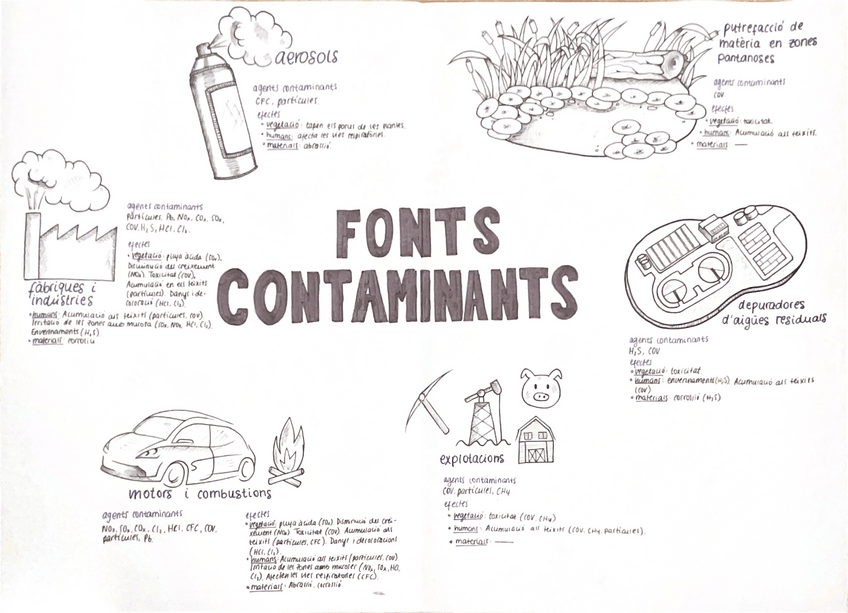 aerosols
agents contaminants
CFC, partícules.
efectes
• vegetació: tapen els porus de les plantes.
• humans: afecta les vies respiratòries.
• materials: abrasió.
putrefacció de
matèria en zones
pantanoses
agents contaminants
COV.
efectes
• vegetació: toxicitat.
• humans: Acumulació als teixits.
• materials: —
fàbriques i
indústries
agents contaminants
Partícules, Pb, NOx, COx, SOx,
COV, H₂S, HCl, Cl₂.
efectes
• vegetació: pluja àcida (SOx).
Disminució del creixement
(NOx). Toxicitat (COV).
Acumulació en els teixits
(partícules). Danys i de-
coloració (HCl, Cl₂).
• humans: Acumulació als teixits (partícules, COV).
Irritació de les zones amb mucosa (SOx, NOx, HCl, Cl₂).
Enverinaments (H₂S).
• materials: corrosió
FONTS
CONTAMINANTS
depuradores
d'aigües residuals
agents contaminants
H₂S, COV
efectes
• vegetació: toxicitat.
• humans: enverinaments (H₂S). Acumulació als teixits
(COV)
• materials: corrosió (H₂S)
motors i combustions
agents contaminants
NOx, SOx, COx, Cl₂, HCl, CFC, COV,
partícules, Pb.
efectes
• vegetació: pluja àcida (SOx). Disminució del crei-
xement (NOx). Toxicitat (COV). Acumulació als
teixits (partícules, CFC). Danys i decoloracions
(HCl, Cl₂).
• humans: Acumulació als teixits (partícules, COV).
Irritació de les zones amb mucoses (NOx, SOx, HCl,
Cl₂). Afecten les vies respiratòries (CFC).
• materials: Abrasió, corrosió.
explotacions
agents contaminants
COV, partícules, CH₄
efectes
• vegetació: toxicitat (COV, CH₄)
• humans: Acumulació als teixits (COV, CH₄, partícules).
• materials: —